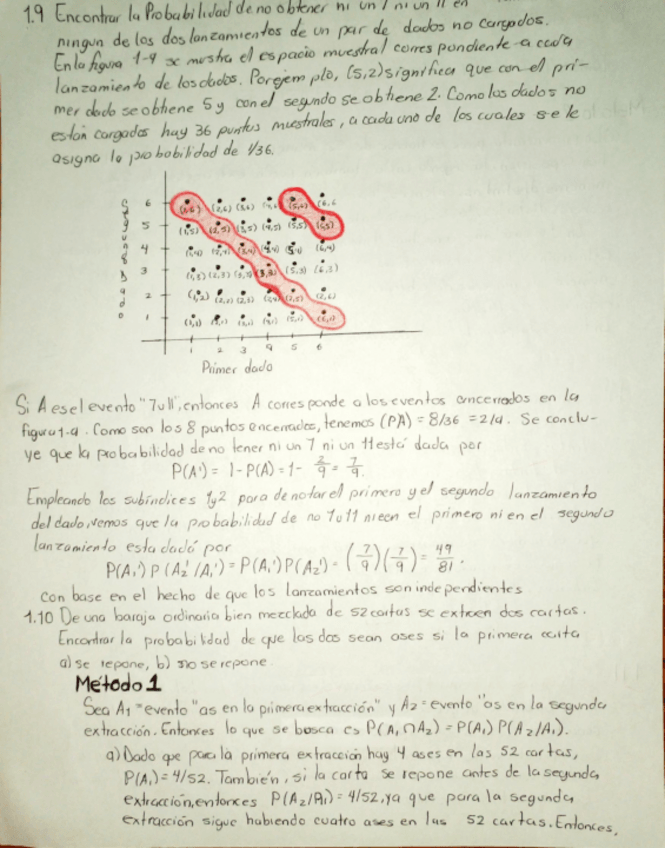 1.9 Encontrar la Probabilidad de no obtener ni un 7 ni un 11 en
ningun de los dos lanzamientos de un par de dados no cargados.
En la figura 1-4 se mustra el espacio muestral corres pondiente a cada
lanzamiento de los dados. Por ejem plo, (5,2) significa que con el pri-
mer dado se obtiene 5 y con el segundo se obtiene 2. Como los dados no
están cargados hay 36 puntos muestrales, a cada uno de los cuales se le
asigna la probabilidad de 1/36.
Segundo Dado
6 (2,6) (3,6) (5,6) (6,6
5 (1,5) (2,5) (3,5) (4,5) (5,5) (6,5)
4 (3,4) (6,4)
3 (1,3) (2,3) (3,3) (5,3) (6,3)
2 (1,2) (2,2) (2,3) (2,6)
1 (1,1) (6,1)
1 2 3 4 5 6
Primer dado
Si A es el evento "7 u 11", entonces A corresponde a los eventos encerrados en la
figura 1-4. Como son los 8 puntos encerrados, tenemos (PA) = 8/36 = 2/9. Se conclu-
ye que la probabilidad de no tener ni un 7 ni un 11 está dada por
P(A') = 1 - P(A) = 1 - 2/9 = 7/9.
Empleando los subíndices 1 y 2 para denotar el primero y el segundo lanzamiento
del dado, vemos que la probabilidad de no 7 u 11 ni en el primero ni en el segundo
lanzamiento esta dado por
P(A₁') P(A₂'/A₁') = P(A₁') P(A₂') = (7/9)(7/9) = 49/81.
con base en el hecho de que los lanzamientos son independientes
1.10 De una baraja ordinaria bien mezclada de 52 cartas se extraen dos cartas.
Encontrar la probabilidad de que las dos sean ases si la primera carta
a) se repone, b) no se repone
Método 1
Sea A₁ = evento "as en la primera extracción" y A₂ = evento "as en la segunda
extracción. Entonces lo que se busca es P(A₁ ∩ A₂) = P(A₁) P(A₂/A₁).
a) Dado que para la primera extracción hay 4 ases en las 52 cartas,
P(A₁) = 4/52. También, si la carta se repone antes de la segunda
extracción, entonces P(A₂/A₁) = 4/52, ya que para la segunda
extracción sigue habiendo cuatro ases en las 52 cartas. Entonces,